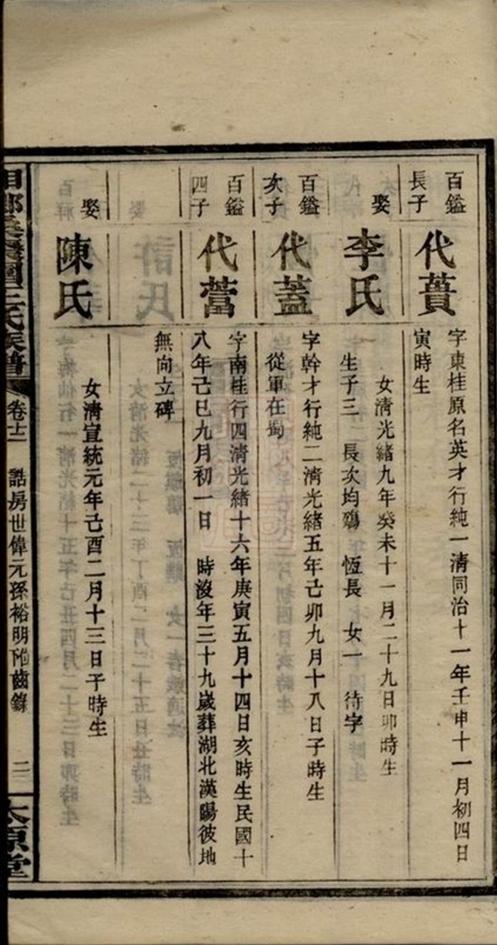 百鎰長子
代蕢
字東桂原名英才行純一清同治十一年壬申十一月初四日
寅時生
娶
李氏
女清光緒九年癸未十一月二十九日卯時生
生子三 長次均殤 恆長 女一 待字
百鎰次子
代蓋
字幹才行純二清光緒五年己卯九月十八日子時生
從軍在蜀
百鎰四子
代蒿
字南桂行四清光緒十六年庚寅五月十四日亥時生民國十
八年己巳九月初一日 時沒年三十九歲葬湖北漢陽彼地
無向立碑
娶
陳氏
女清宣統元年己酉二月十三日子時生
王氏族譜
卷十二
誥房世偉元孫裕明附齒錄
二
太原堂